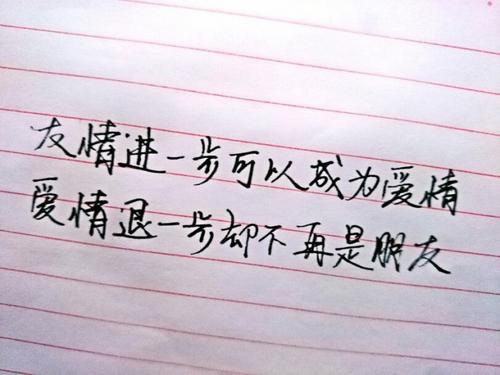 友情进一步可以成为爱情
爱情退一步却不再是朋友